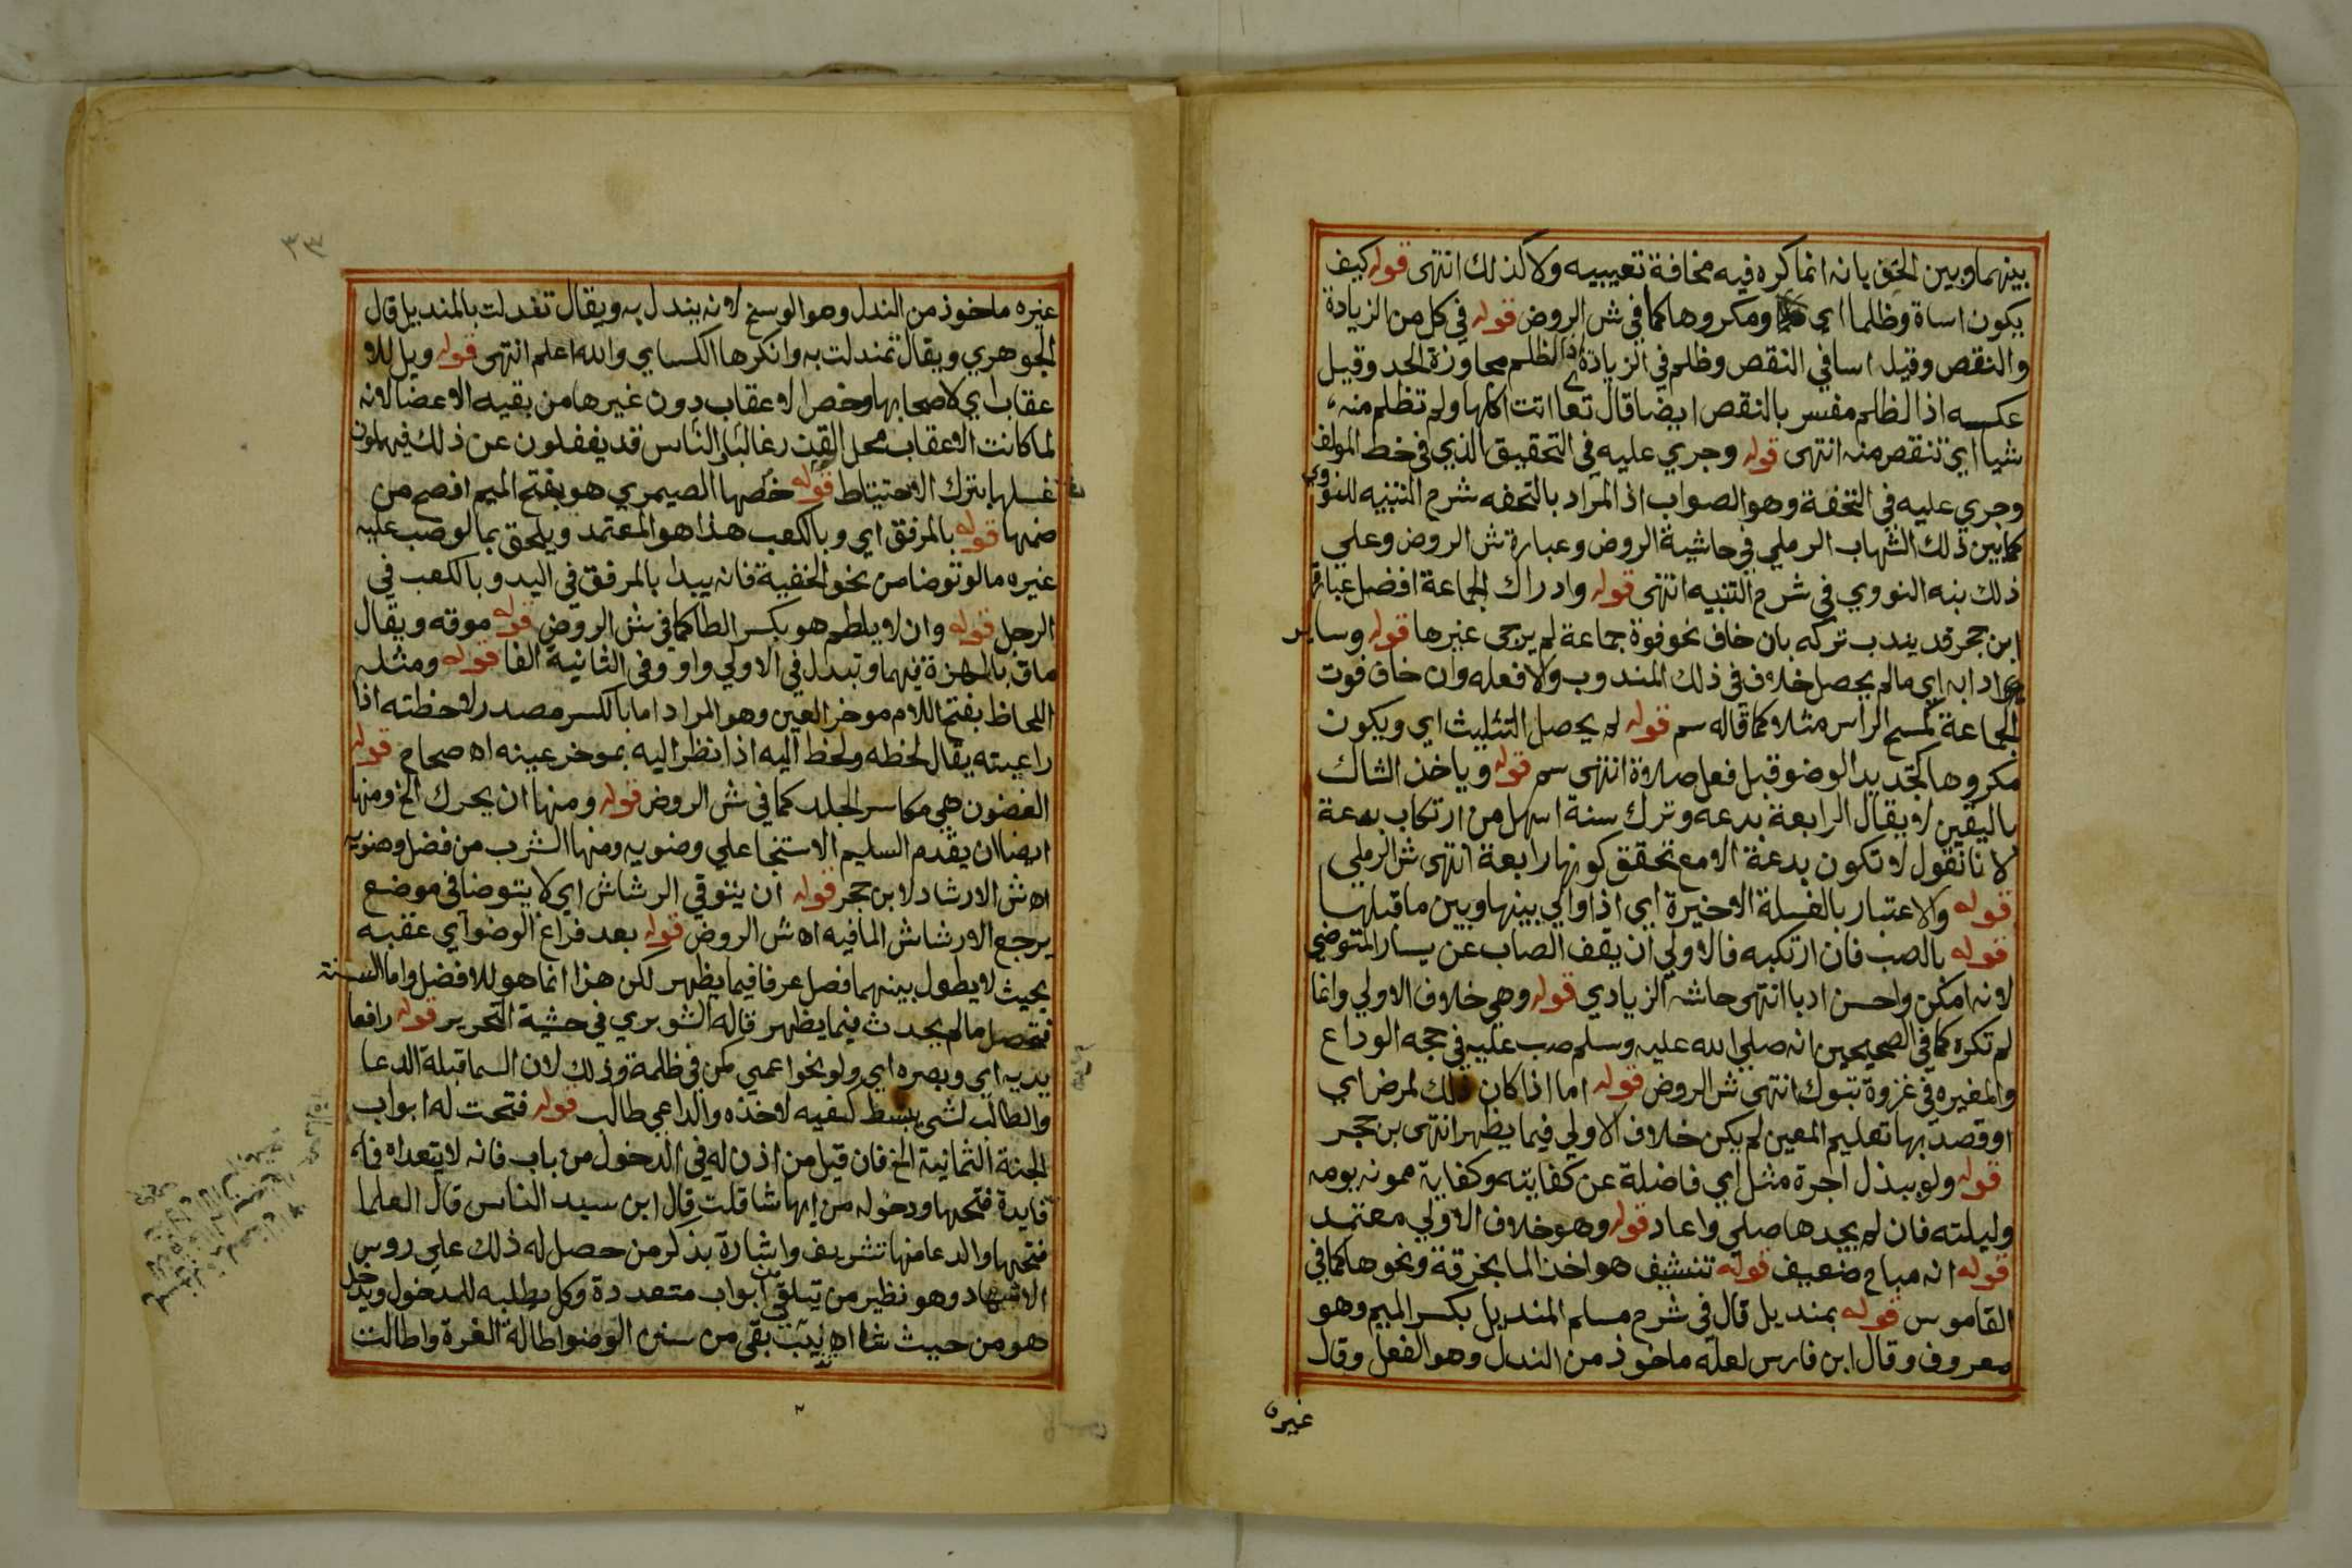 بينهما وبين الحق بانه انما كره فيه مخافة تعييبيه ولا كذلك انتهى قوله كيف
يكون اساة وظلما اي ومكروها كما في ش الروض قوله في كل من الزيادة
والنقص وقيل اسا في النقص وظلم في الزيادة اذ الظلم مجاوزة الحد وقيل
عكسه اذ الظلم مفسر بالنقص ايضا قال تعا اتت اكلها ولم تظلم منه
شيا اي تنقص منه انتهى قوله وجري عليه في التحقيق الذي في خط المولف
وجري عليه في التحفة وهو الصواب اذ المراد بالتحفه شرح التنبيه للنووي
كما بين ذلك الشهاب الرملي في حاشية الروض وعبارة ش الروض وعلي
ذلك بنه النووي في شرح التنبيه انتهى قوله وادراك الجماعة افضل عبارة
ابن حجر قد يندب تركه بان خاف نحو فوة جماعة لم يرجى غيرها قوله وساير
ادابه اي مالم يحصل خلاف في ذلك المندوب ولا فعله وان خاف فوت
الجماعة كمسح الراس مثلا كما قاله سم قوله لم يحصل التثليث اي ويكون
مكروها كتجديد الوضو قبل فعل صلاوة انتهى سم قوله وياخذ الشاك
باليقين لا يقال الرابعة بدعه وترك سنة اسهل من ارتكاب بدعة
لانا نقول لا تكون بدعة الا مع تحقق كونها رابعة انتهى ش الرملي
قوله والاعتبار بالغسلة الاخيرة اي اذا والي بينها وبين ما قبلها
قوله بالصب فان ارتكبه فالاولي ان يقف الصاب عن يسار المتوضي
لانه امكن واحسن ادبا انتهى حاشه الزيادي قوله وهي خلاف الاولي وانما
لم تكره كما في الصحيحين انه صلي الله عليه وسلم صب عليه في حجه الوداع
والمغيره في غزوة تبوك انتهى ش الروض قوله اما اذا كان ذلك لمرض اي
او قصد بها تعليم المعين لم يكن خلاف الاولي فيما يظهر انتهى بن حجر
قوله ولو ببذل اجرة مثل اي فاضلة عن كفايته وكفاية ممونه يومه
وليلته فان لم يجدها صلي واعاد قوله وهو خلاف الاولي معتمد
قوله انه مباح ضعيف قوله تنشيف هو اخذ الما بخرقة ونحوها كما في
القاموس قوله بمنديل قال في شرح مسلم المنديل بكسر الميم وهو
معروف وقال ابن فارس لعله ماخوذ من الندل وهو الفعل وقال
غيره
٣٣
غيره ماخوذ من الندل وهو الوسخ لانه يندل به ويقال تندلت بالمنديل قال
الجوهري ويقال تمندلت به وانكرها الكساي والله اعلم انتهى قوله ويل للا
عقاب اي لاصحابها وخص الاعقاب دون غيرها من بقيه الاعضا لانه
لما كانت الاعقاب محل القدر غالبا والناس قد يغفلون عن ذلك فيهملون
غسلها بترك الاحتياط قوله خصها الصيمري هو بفتح الميم افصح من
ضمها قوله بالمرفق اي وبالكعب هذا هو المعتمد ويلحق بما لو صب عليه
غيره ما لو توضا من نحو الحنفية فانه يبدا بالمرفق في اليد وبالكعب في
الرجل قوله وان لا يلطم هو بكسر الطا كما في ش الروض قوله موقه ويقال
ماق بالهمزة فيهما وتبدل في الاولي واو وفي الثانية الفا قوله ومثله
اللحاظ بفتح اللام موخر العين وهو المراد اما بالكسر مصدر لاحظته اذا
راعيته يقال لحظه ولحظ اليه اذا نظر اليه بموخر عينه اه صحاح قوله
الغضون هي مكاسر الجلد كما في ش الروض قوله ومنها ان يحرك الخ ومنها
ايضا ان يقدم السليم الاستنجا علي وضويه ومنها الشرب من فضل وضويه
اه ش الارشاد لابن حجر قوله ان يتوقي الرشاش اي لا يتوضا في موضع
يرجع الارشاش الما فيه اه ش الروض قوله بعد فراغ الوضو اي عقبه
بحيث لا يطول بينهما فصل عرفا فيما يظهر لكن هذا انما هو للافضل واما السنة
فتحصل مالم يحدث فيما يظهر قاله الشوبري في حشية التحرير قوله رافعا
يديه اي وبصره اي ولو نحو اعمي كمن في ظلمة وذلك لان السما قبلة الدعا
والطالب لشي يبسط كفيه لاخذه والداعي طالب قوله فتحت له ابواب
الجنة الثمانية الخ فان قيل من اذن له في الدخول من باب فانه لا يتعداه فما
فايدة فتحها ودخوله من ايها شا قلت قال ابن سيد الناس قال العلما
فتحها والدعا منها تشريف واشارة بذكر من حصل له ذلك علي روس
الاشهاد وهو نظير من تيلقي من ابواب متعددة وكل يطلبه للدخول ويدخل
هو من حيث شا اه بقي من سنن الوضو اطالة الغرة واطالت